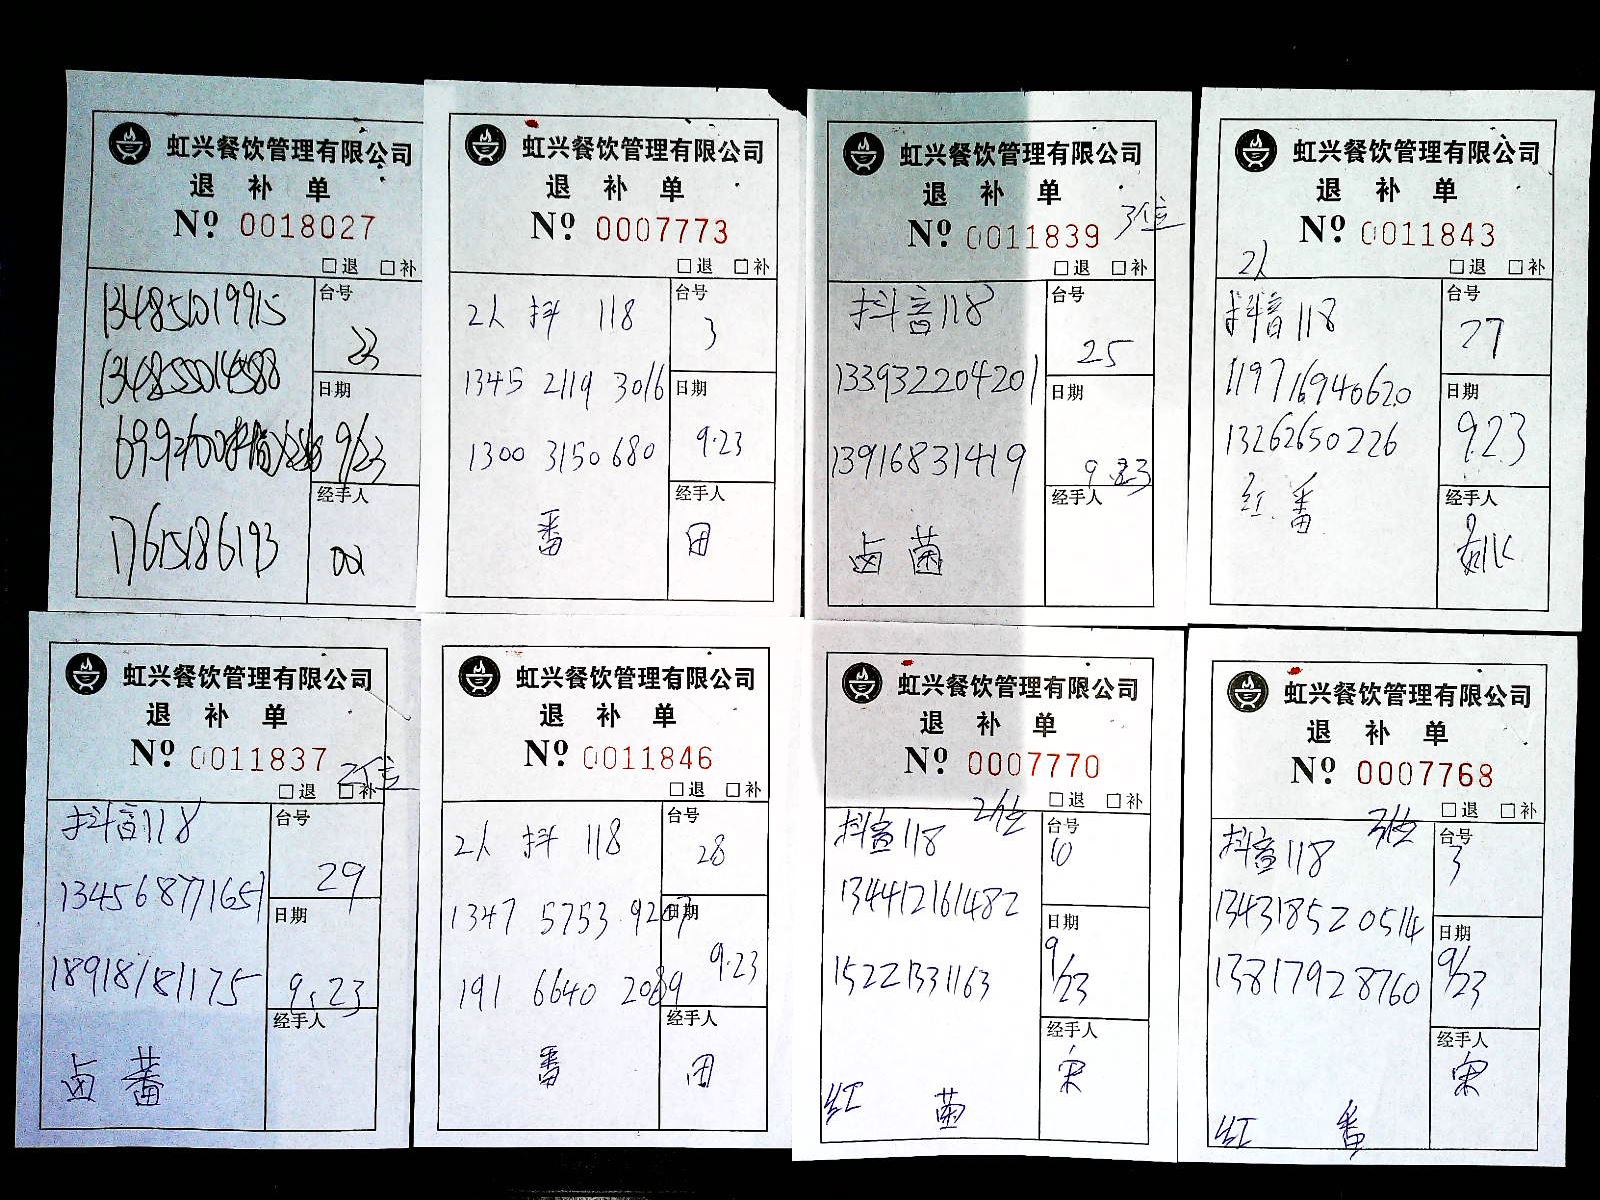 虹兴餐饮管理有限公司
退 补 单
Nº 0018027
□退 □补
134851019915
台号
23
日期
9/23
17615186193
经手人
虹兴餐饮管理有限公司
退 补 单
Nº 0007773
□退 □补
2人 抖 118
台号
3
1345 2119 3016
日期
9.23
1300 3150 680
经手人
番
田
虹兴餐饮管理有限公司
退 补 单
Nº 0011839
3位
□退 □补
抖音118
台号
25
133932204201
日期
13916831419
9.23
经手人
卤 菌
虹兴餐饮管理有限公司
退 补 单
Nº 0011843
2人
□退 □补
抖音118
台号
27
119716940620
日期
13262650226
9.23
红 番
经手人
虹兴餐饮管理有限公司
退 补 单
Nº 0011837
2位
□退 □补
抖音118
台号
29
134568771651
日期
18918181175
9.23
经手人
卤 蕃
虹兴餐饮管理有限公司
退 补 单
Nº 0011846
□退 □补
2人 抖 118
台号
28
1347 5753 9207
日期
9.23
191 6640 2089
经手人
番
田
虹兴餐饮管理有限公司
退 补 单
Nº 0007770
2位
□退 □补
抖音118
台号
10
134412161482
日期
9/23
15221331163
经手人
宋
红 菌
虹兴餐饮管理有限公司
退 补 单
Nº 0007768
□退 □补
抖音118
台号
3
134318520514
日期
9/23
13817928760
经手人
宋
红 番